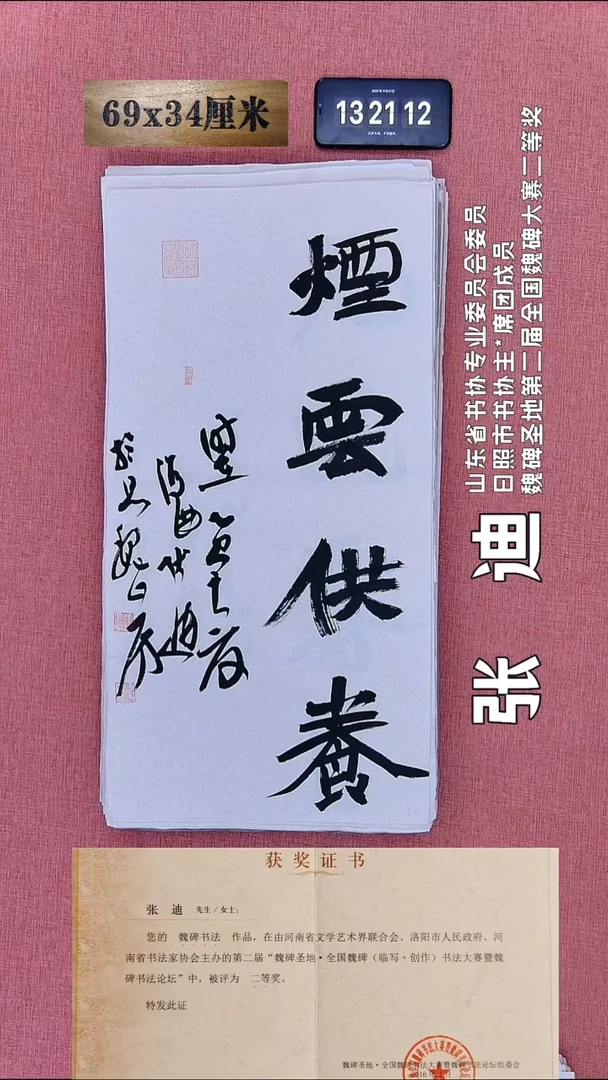 69x34厘米
13 21 12
山东省书协专业委员会委员
日照市书协主*席团成员
魏碑圣地第二届全国魏碑大赛二等奖
张迪
煙雲供養
获奖证书
张 迪 先生/女士:
您的 魏碑书法 作品,在由河南省文学艺术界联合会、洛阳市人民政府、河
南省书法家协会主办的第二届“魏碑圣地·全国魏碑(临写+创作)书法大赛暨魏
碑书法论坛”中,被评为 二等奖。
特发此证
魏碑圣地·全国魏碑书法大赛暨魏碑书法论坛组委会